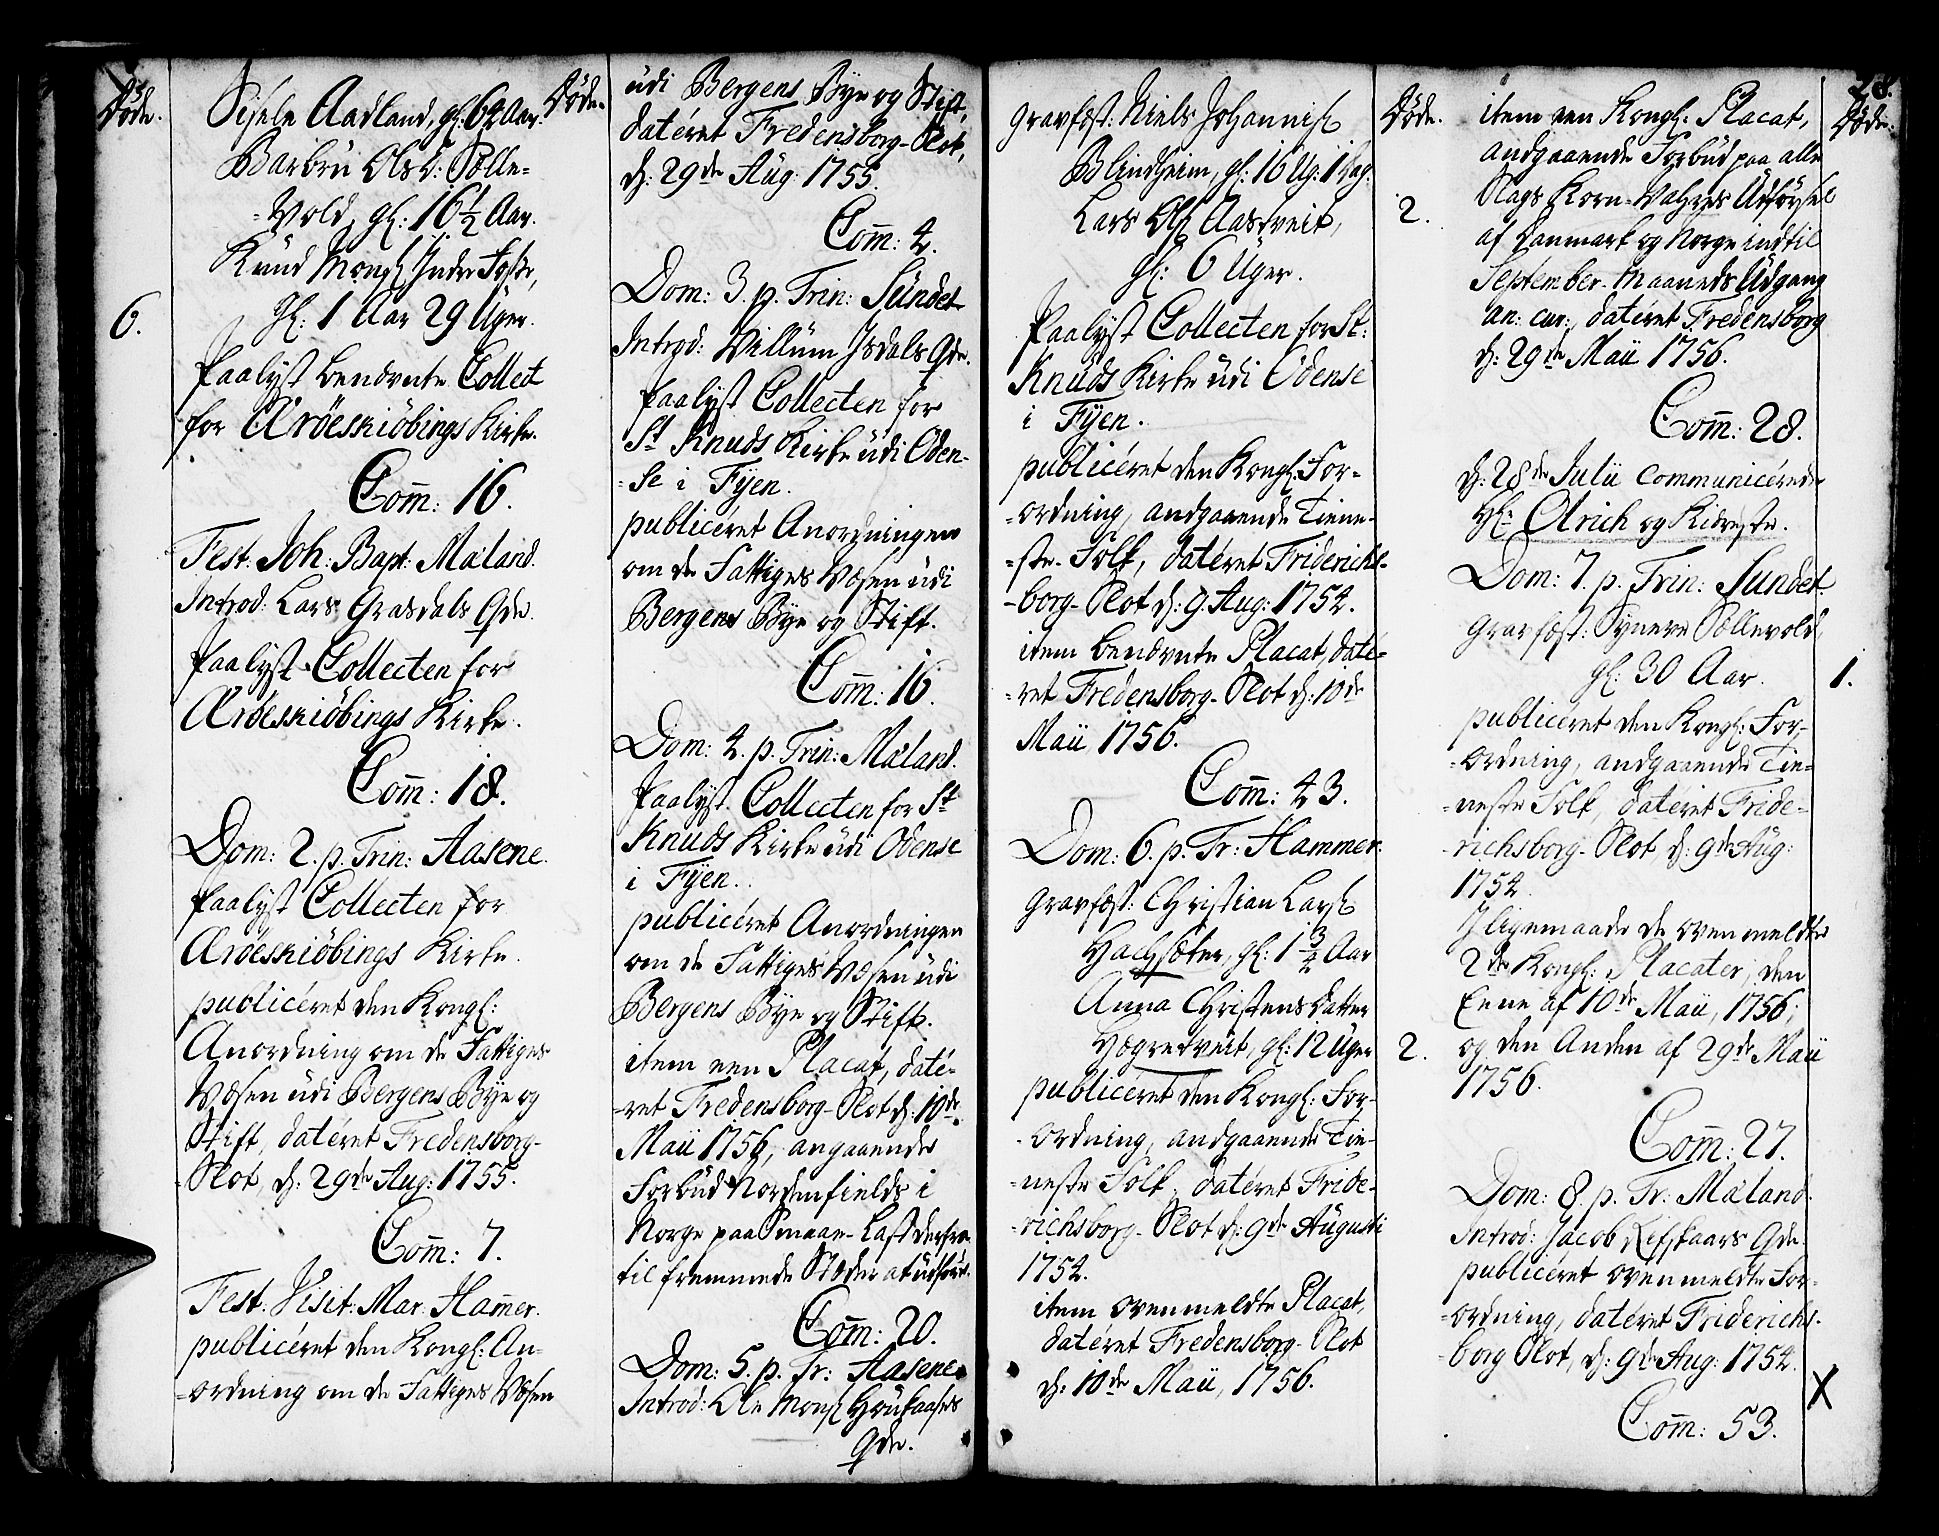 Døde.
Sisele Aadland, gl: 64 Aar.
Barbru Olsd: Sølle-
-vold, gl: 16½ Aar.
Knud Monss: Indre Fosse,
gl: 1 Aar 29 Uger.
6.
Paalyst benævnte Collect
for Æröeskiöbings Kirke.
Com̄: 16.
Fest: Joh: Bapt: Mæland.
Introd: Lars Grasdals Qde.
Paalyst Collecten for
Æröeskiöbings Kirke.
Com̄: 18.
Dom: 2. p. Trin: Aasene.
Paalyst Collecten for
Æröeskiöbings Kirke.
publicéret den Kongl:
Anordning om de Fattiges
Væsen udi Bergens Bye og
Stift, datéret Fredensborg-
Slot, d: 29de Aug: 1755.
Com̄: 7.
Fest: Visit: Mar: Ham̄er.
publicéret den Kongl: An-
-ordning om de Fattiges Væsen
Døde.
udi Bergens Bye og Stift,
datéret Fredensborg-Slot,
d: 29de Aug: 1755.
Com̄: 4.
Dom: 3. p. Trin: Sundet
Introd: Villum Isdals Qde.
Paalyst Collecten for
St Knuds Kirke udi Oden-
-se i Fÿen.
publicéret Anordningen
om de Fattiges Væsen udi
Bergens Bye og Stift.
Com̄: 16.
Dom: 4. p. Trin: Mæland.
Paalyst Collecten for St
Knuds Kirke udi Odense
i Fÿen.
publicéret Anordningen
om de Fattiges Væsen udi
Bergens Bye og Stift.
item een Placat, daté-
-ret Fredensborg-Slot d: 10de
Maii 1756, angaaende
Forbud Nordenfields i
Norge paa Smaae-Last derfra
til fremmede Stæder at udföre.
Com̄: 20.
Dom: 5. p. Tr: Aasene.
Introd: Ole Monss: Houkaases
Qde.
Gravfæst: Niels Johanniss:
Blindheim, gl: 16 Ug: 1 Dag.
Lars Ols: Aastveit,
gl: 6 Uger.
Døde.
2.
Paalyst Collecten for St:
Knuds Kirke udi Odense
i Fÿen.
publicéret den Kongl: For-
-ordning, andgaaende Tiene-
-ste-Folk, datéret Friderichs-
-borg-Slot d: 9. Aug: 1754.
item benævnte Placat, daté-
-ret Fredensborg-Slot d: 10de
Maii 1756.
Com̄: 43.
Dom: 6. p. Tr: Hammer.
Gravfæst: Christian Larss:
gl: 1¾ Aar
Anna Christens Datter
Hægretveit, gl: 12 Uger
2.
publicéret den Kongl: For-
-ordning, andgaaende Tie-
-neste Folk, datéret Fride-
-richsborg-Slot d: 9de Augusti
1754.
item ovenmeldte Placat,
datéret Fredensborg-Slot
d: 10de Maii, 1756.
28.
Døde.
item een Kongl: Placat,
andgaaende Forbud paa alle
Slags Korn-Vahres Udförsel
af Danmark og Norge indtil
September-Maaneds Udgang
an: cur:, datéret Fredensborg
d: 29de Maii 1756.
Com̄: 28.
d: 28de Julii communicérede
Hr: Olrich og Kiæreste.
Dom: 7. p. Trin: Sundet
Gravfæst: Syneve Søllevold,
gl: 30 Aar.
1.
publicéret den Kongl: For-
-ordning, andgaaende Tie-
-neste Folk, datéret Fride-
-richsborg-Slot, d: 9de Aug:
1754.
Iligemaade de ovenmeldte
2de Kongl: Placater, den
Eene af 10de Maii, 1756,
og den Anden af 29de Maii
1756.
Com̄: 27.
Dom: 8. p. Tr: Mæland.
Introd: Jacob Refskaars Qde.
publicéret ovenmeldte For-
-ordning, datéret Friderichs-
-borg Slot, d: 9de Aug: 1754.
X
Com̄: 53.